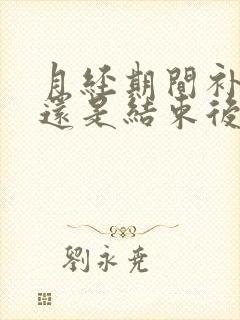 月经期間补
還是結束後
劉永堯